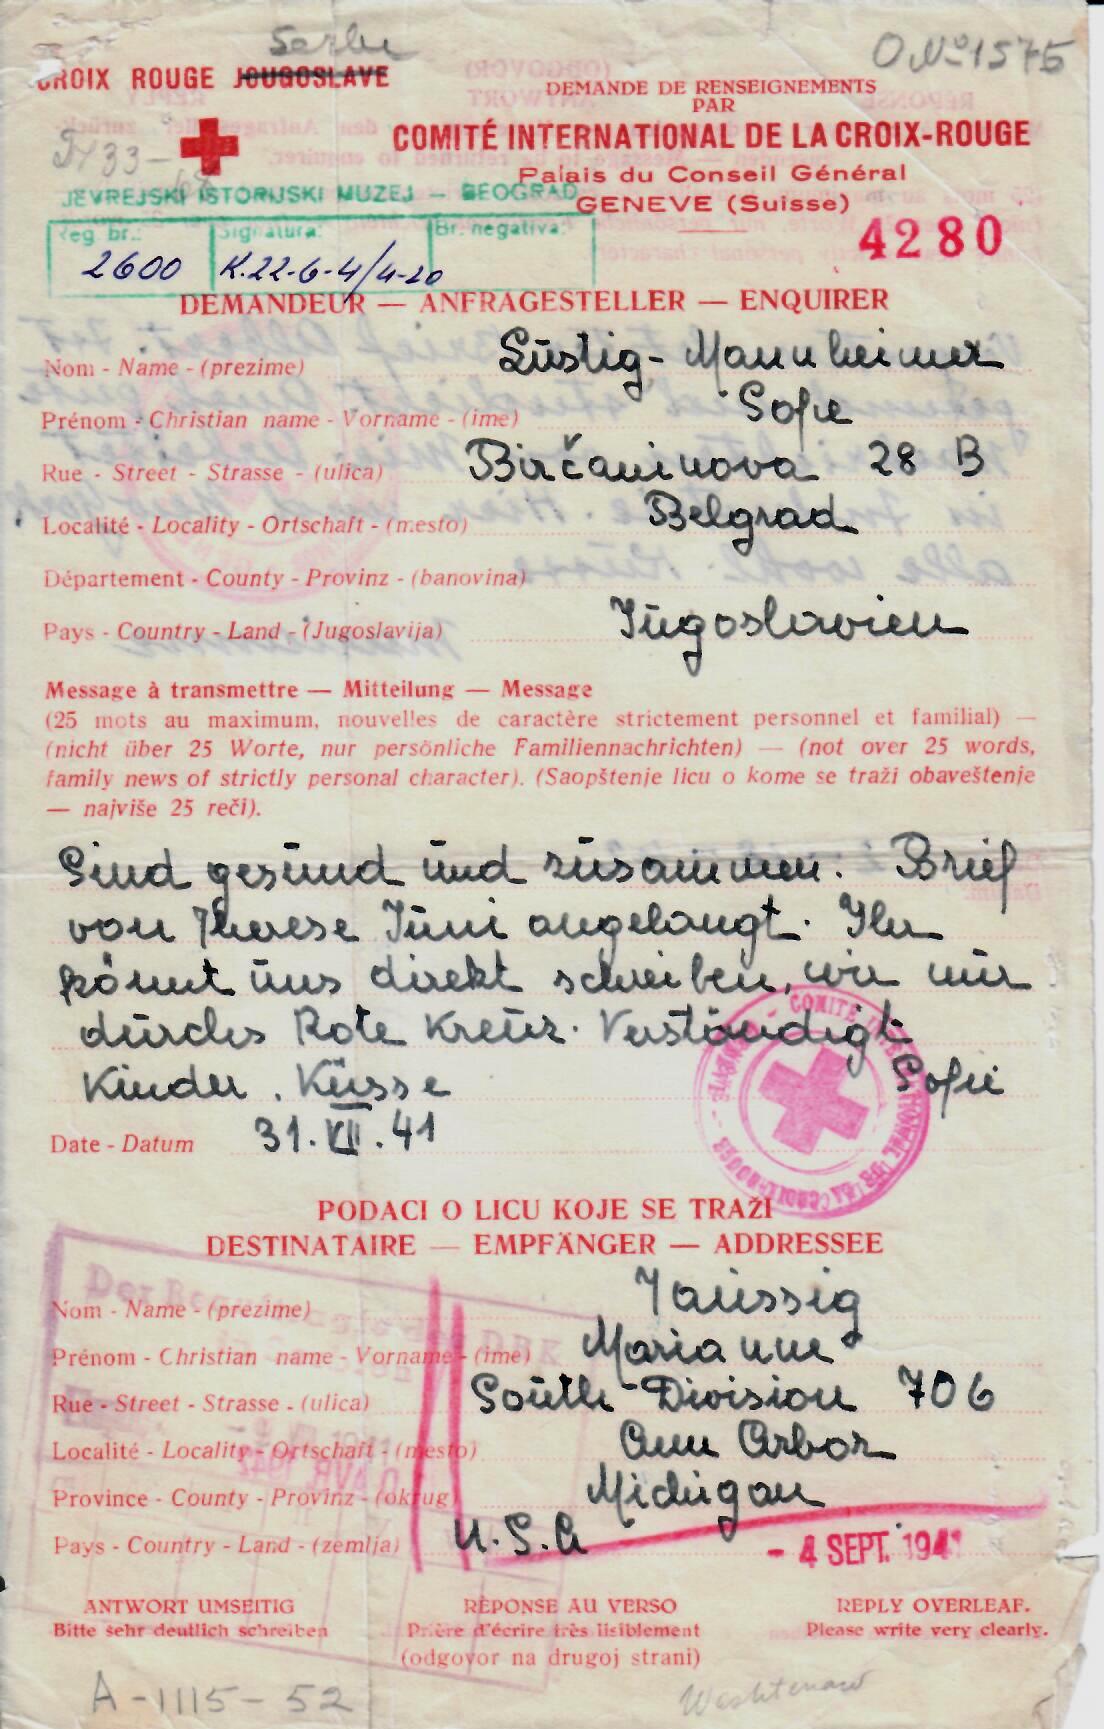 Serbe
O No 1575
CROIX ROUGE JOUGOSLAVE
DEMANDE DE RENSEIGNEMENTS
PAR
COMITÉ INTERNATIONAL DE LA CROIX-ROUGE
Palais du Conseil Général
GENEVE (Suisse)
4280
JEVREJSKI ISTORIJSKI MUZEJ — BEOGRAD
Reg. br.: Signatura: Br. negativa:
2600 K.22-6-4/4-20
DEMANDEUR — ANFRAGESTELLER — ENQUIRER
Nom - Name - (prezime) Lustig-Mannheimer
Prénom - Christian name - Vorname - (ime) Sofie
Rue - Street - Strasse - (ulica) Birčaninova 28 B
Localité - Locality - Ortschaft - (mesto) Belgrad
Département - County - Provinz - (banovina)
Pays - Country - Land - (Jugoslavija) Jugoslavien
Message à transmettre — Mitteilung — Message
(25 mots au maximum, nouvelles de caractère strictement personnel et familial) —
(nicht über 25 Worte, nur persönliche Familiennachrichten) — (not over 25 words,
family news of strictly personal character). (Saopštenje licu o kome se traži obaveštenje
— najviše 25 reči).
Sind gesund und zusammen. Brief
von Therese Juni angelangt. Ihr
könnt uns direkt schreiben, wir nur
durchs Rote Kreuz. Verständigt
Kinder. Küsse Sofie
Date - Datum 31.VII.41
PODACI O LICU KOJE SE TRAŽI
DESTINATAIRE — EMPFÄNGER — ADDRESSEE
Nom - Name - (prezime) Taussig
Prénom - Christian name - Vorname - (ime) Marianne
Rue - Street - Strasse - (ulica) South-Division 706
Localité - Locality - Ortschaft - (mesto) Ann Arbor
Province - County - Provinz - (okrug) Michigan
Pays - Country - Land - (zemlja) U.S.A
- 4 SEPT. 1941
ANTWORT UMSEITIG RÉPONSE AU VERSO REPLY OVERLEAF.
Bitte sehr deutlich schreiben Prière d'écrire très lisiblement Please write very clearly.
(odgovor na drugoj strani)
A-1115-52
Washtenaw